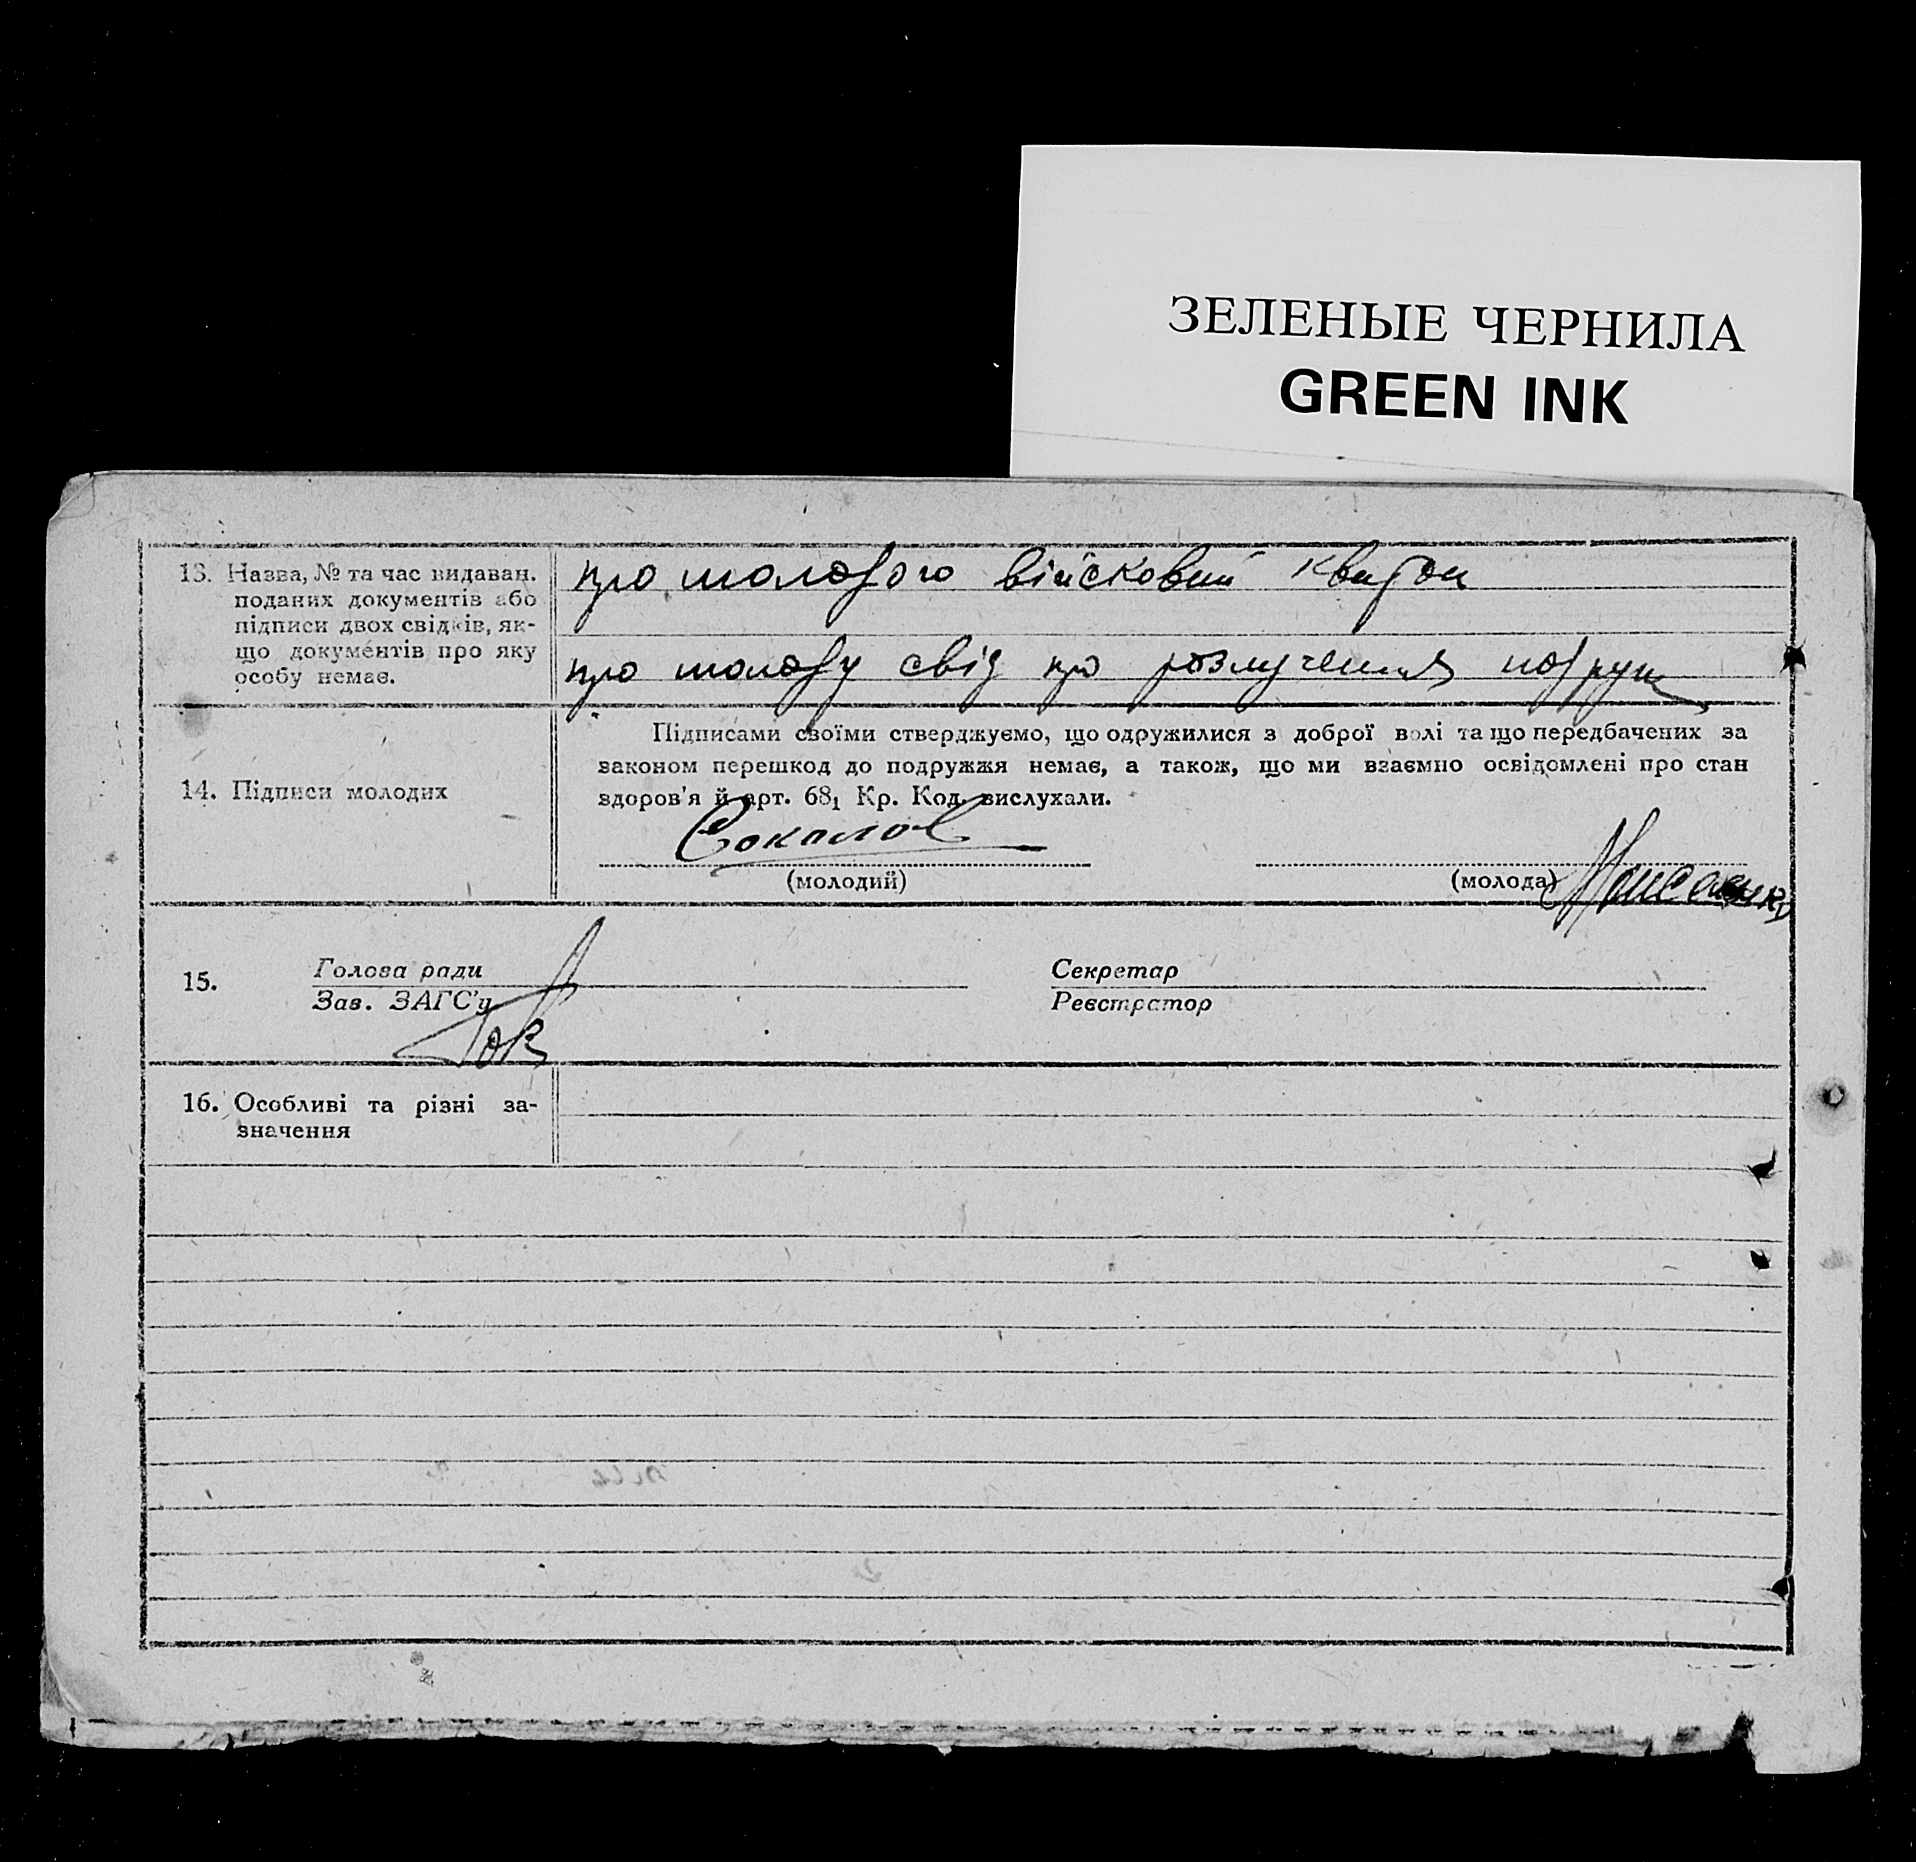 ЗЕЛЕНЫЕ ЧЕРНИЛА
GREEN INK
13. Назва, № та час видаван.
поданих документів або
підписи двох свідків, як-
що документів про яку
особу немає.
про молодого військовий квиток
про молоду свід про розлучення подруж
14. Підписи молодих
Підписами своїми стверджуємо, що одружилися з доброї волі та що передбачених за
законом перешкод до подружжя немає, а також, що ми взаємно освідомлені про стан
здоров'я й арт. 68₁ Кр. Код. вислухали.
Соколов
(молодий)
(молода)
15.
Голова ради
Зав. ЗАГС'у
Секретар
Реєстратор
16. Особливі та різні за-
значення